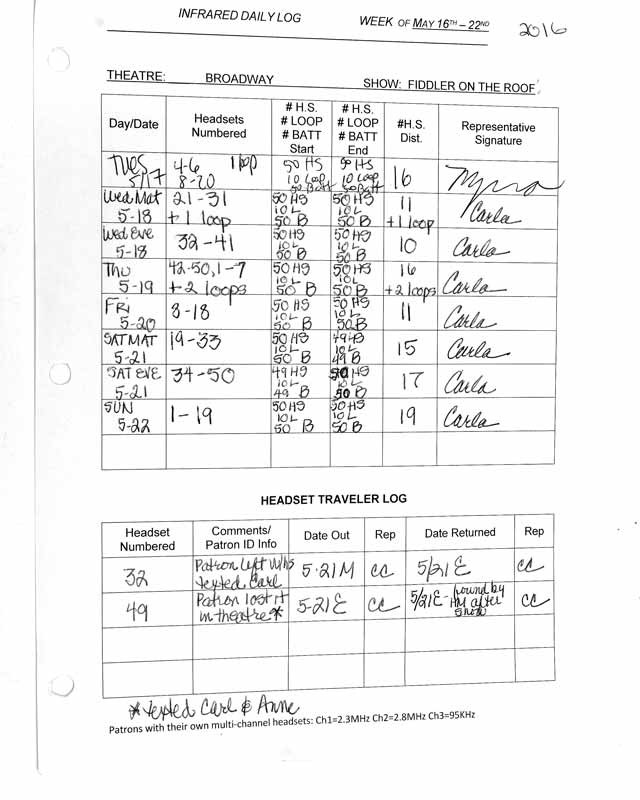 INFRARED DAILY LOG WEEK OF MAY 16TH – 22ND 2016
THEATRE: BROADWAY SHOW: FIDDLER ON THE ROOF
Day/Date Headsets Numbered # H.S. # LOOP # BATT Start # H.S. # LOOP # BATT End #H.S. Dist. Representative Signature
TUES 5/17 4-6 1 loop 8-20 50 HS 10 Loop 50 Batt 50 HS 10 Loop 50 Batt 16 Myra
Wed Mat 5-18 21-31 +1 loop 50 HS 10 L 50 B 50 HS 10 L 50 B 11 +1 loop Carla
Wed Eve 5-18 32-41 50 HS 10 L 50 B 50 HS 10 L 50 B 10 Carla
Thu 5-19 42-50, 1-7 +2 loops 50 HS 10 L 50 B 50 HS 10 L 50 B 16 +2 loops Carla
FRI 5-20 8-18 50 HS 10 L 50 B 50 HS 10 L 50 B 11 Carla
SAT MAT 5-21 19-33 50 HS 10 L 50 B 49 HS 10 L 49 B 15 Carla
SAT EVE 5-21 34-50 49 HS 10 L 49 B 50 HS 10 L 50 B 17 Carla
SUN 5-22 1-19 50 HS 10 L 50 B 50 HS 10 L 50 B 19 Carla
HEADSET TRAVELER LOG
Headset Numbered Comments/ Patron ID Info Date Out Rep Date Returned Rep
32 Patron left w/hs texted Carl 5·21 M CC 5/21 E CC
49 Patron lost it in theatre* 5-21 E CC 5/21 E - found by HM after show CC
* texted Carl & Anne
Patrons with their own multi-channel headsets: Ch1=2.3MHz Ch2=2.8MHz Ch3=95KHz